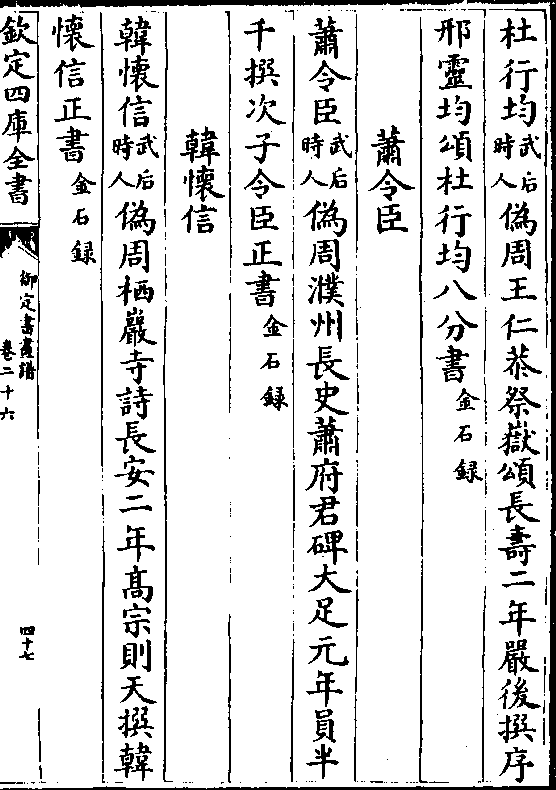 杜行均武后時人偽周王仁恭祭嶽頌長壽二年嚴後撰序
邢靈均頌杜行均八分書金石録
蕭令臣
蕭令臣武后時人偽周濮州長史蕭府君碑大足元年員半
千撰次子令臣正書金石録
韓懷信
韓懷信武后時人偽周栖巖寺詩長安二年髙宗則天撰韓
懷信正書金石録
欽定四庫全書
御定書畫譜
卷二十六
四十七